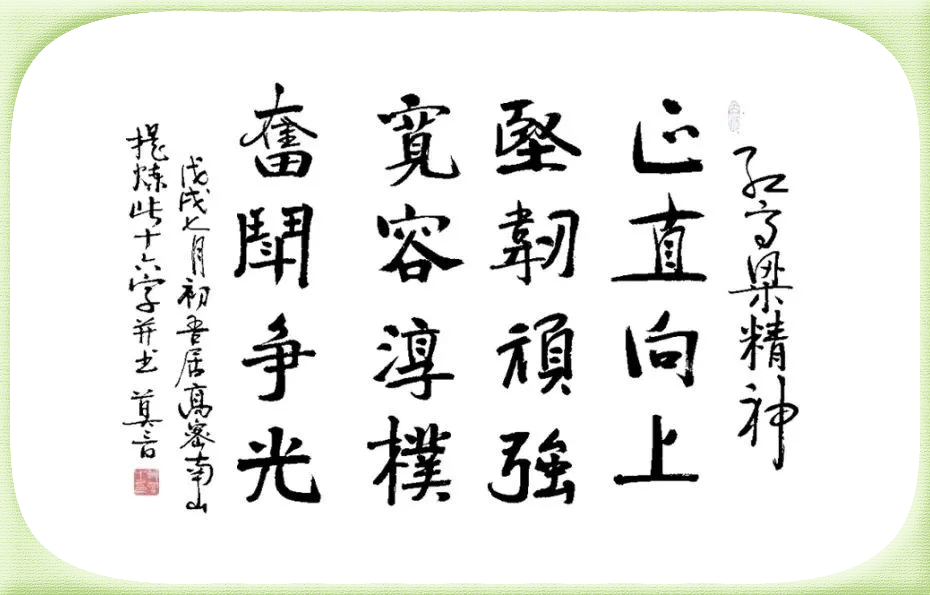 红高粱精神
正直向上
堅韌頑強
寬容淳樸
奮鬭争光
戊戌七月初吾居高密南山
提炼此十六字并书 莫言